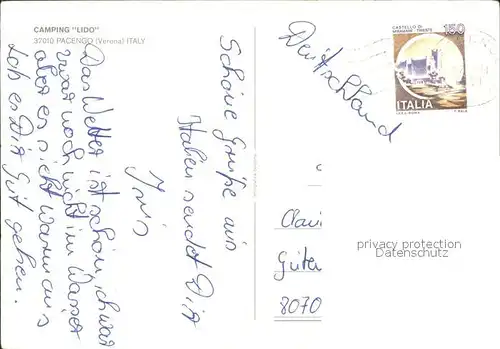 CAMPING "LIDO"
37010 PACENGO (Verona) ITALY
Schöne Grüße aus
Italien sendet Dir
Iris
Das Wetter ist schön, ich war
zwar noch nicht im Wasser
aber es ist warm
Laß es Dir gut gehen.
Deutschland
CASTELLO DI
MIRAMARE - TRIESTE
150
ITALIA
Güter
8070
privacy protection
Datenschutz